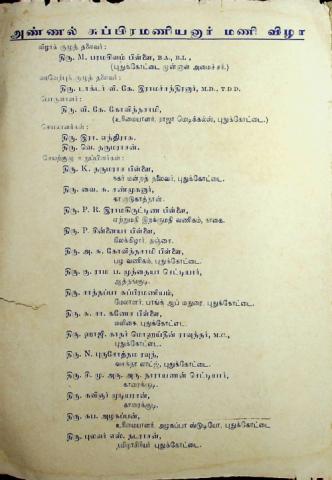 அண்ணல் சுப்பிரமணியனார் மணி விழா
விழாக் குழுத் தலைவர்:
திரு. M. பரமசிவம் பிள்ளை, B.A., B.L.,
(புதுக்கோட்டை முன்னாள் அமைச்சர்.)
வரவேற்புக் குழுத் தலைவர்:
திரு. டாக்டர் வி. கே. இராமச்சந்திரனார், M.D., T.D.D.
பொருளாளர்:
திரு. வி. கே. கோவிந்தசாமி,
(உரிமையாளர், ராஜா மெடிக்கல்ஸ், புதுக்கோட்டை.)
செயலாளர்கள்:
திரு. இரா. எத்திராசு.
திரு. வெ. தருமராசன்.
செயற்குழு உறுப்பினர்கள்:
திரு. K. தருமராச பிள்ளை,
நகர் மன்றத் தலைவர், புதுக்கோட்டை.
திரு. வை. சு. சண்முகனார்,
கானாடுகாத்தான்.
திரு. P. R. இராமகிருட்டிண பிள்ளை,
ஏற்றுமதி இறக்குமதி வணிகம், நாகை.
திரு. P. சின்னையா பிள்ளை,
லேக்கிழார், தஞ்சை.
திரு. அ. சு. கோவிந்தசாமி பிள்ளை,
பழ வணிகம், புதுக்கோட்டை.
திரு. கு. ராம. ப. முத்தையா செட்டியார்,
ஆத்தங்குடி.
திரு. சாத்தப்பா சுப்பிரமணியம்,
மேலாளர், பாங்க் ஆப் மதுரை, புதுக்கோட்டை.
திரு. சு. சா. கணேச பிள்ளை,
மளிகை, புதுக்கோட்டை.
திரு. ஹாஜி. காதர் மொஹய்தீன் ராவுத்தர், M.C.,
புதுக்கோட்டை.
திரு. N. புருசோத்தம ராவ்,
வசந்தா லாட்ஜ், புதுக்கோட்டை.
திரு. ரி. மு. அரு. அரு. நாராயணன் செட்டியார்,
காரைக்குடி.
திரு. கவிஞர் முடியரசன்,
காரைக்குடி.
திரு. சுப. அழகப்பன்,
உரிமையாளர், அழகப்பா ஸ்டுடியோ, புதுக்கோட்டை
திரு. புலவர் எஸ். நடராசன்,
தமிழாசிரியர் புதுக்கோட்டை.